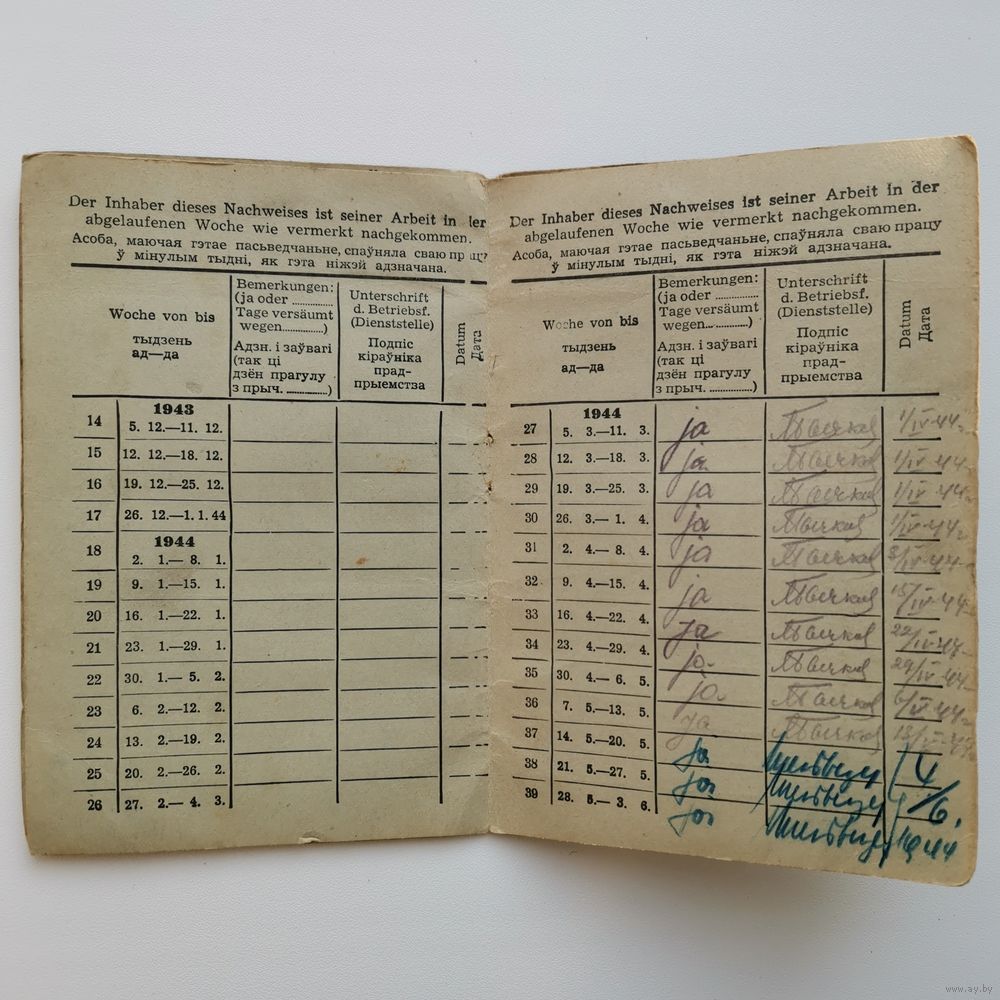 Der Inhaber dieses Nachweises ist seiner Arbeit in der
abgelaufenen Woche wie vermerkt nachgekommen.
Асоба, маючая гэтае пасьведчаньне, спаўняла сваю працу
ў мінулым тыдні, як гэта ніжэй адзначана.
Woche von bis
тыдзень
ад—да
Bemerkungen:
(ja oder ............
Tage versäumt
wegen............)
Адзн. і заўвагі
(так ці
дзён прагулу
з прыч. ............)
Unterschrift
d. Betriebsf.
(Dienststelle)
Подпіс
кіраўніка
прад-
прыемства
Datum
Дата
1943
14 5. 12.—11. 12.
15 12. 12.—18. 12.
16 19. 12.—25. 12.
17 26. 12.—1. 1. 44
1944
18 2. 1.— 8. 1.
19 9. 1.—15. 1.
20 16. 1.—22. 1.
21 23. 1.—29. 1.
22 30. 1.— 5. 2.
23 6. 2.—12. 2.
24 13. 2.—19. 2.
25 20. 2.—26. 2.
26 27. 2.— 4. 3.
Der Inhaber dieses Nachweises ist seiner Arbeit in der
abgelaufenen Woche wie vermerkt nachgekommen.
Асоба, маючая гэтае пасьведчаньне, спаўняла сваю працу
ў мінулым тыдні, як гэта ніжэй адзначана.
Woche von bis
тыдзень
ад—да
Bemerkungen:
(ja oder ............
Tage versäumt
wegen............)
Адзн. і заўвагі
(так ці
дзён прагулу
з прыч. ............)
Unterschrift
d. Betriebsf.
(Dienststelle)
Подпіс
кіраўніка
прад-
прыемства
Datum
Дата
1944
27 5. 3.—11. 3. ja 1/IV-44
28 12. 3.—18. 3. ja 1/IV-44
29 19. 3.—25. 3. ja 1/IV-44
30 26. 3.— 1. 4. ja 1/IV-44
31 2. 4.— 8. 4. ja 8/IV-44
32 9. 4.—15. 4. ja 15/IV-44
33 16. 4.—22. 4. ja 22/IV-44
34 23. 4.—29. 4. ja 29/IV-44
35 30. 4.— 6. 5. ja
36 7. 5.—13. 5. ja
37 14. 5.—20. 5. ja
38 21. 5.—27. 5. ja 4/6.
39 28. 5.— 3. 6. ja 1944
www.ay.by